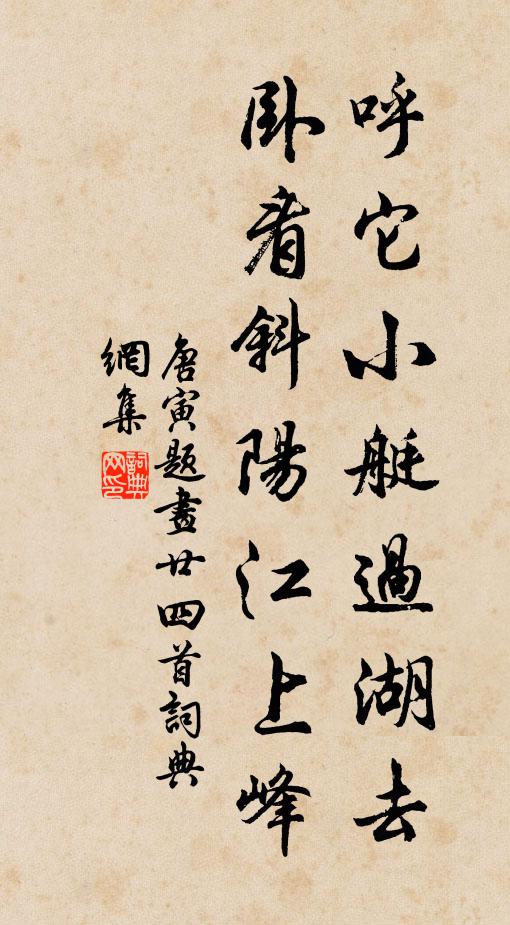 呼它小艇過湖去
臥看斜陽江上峰
唐寅題畫廿四首詞典
網集
詞典網印